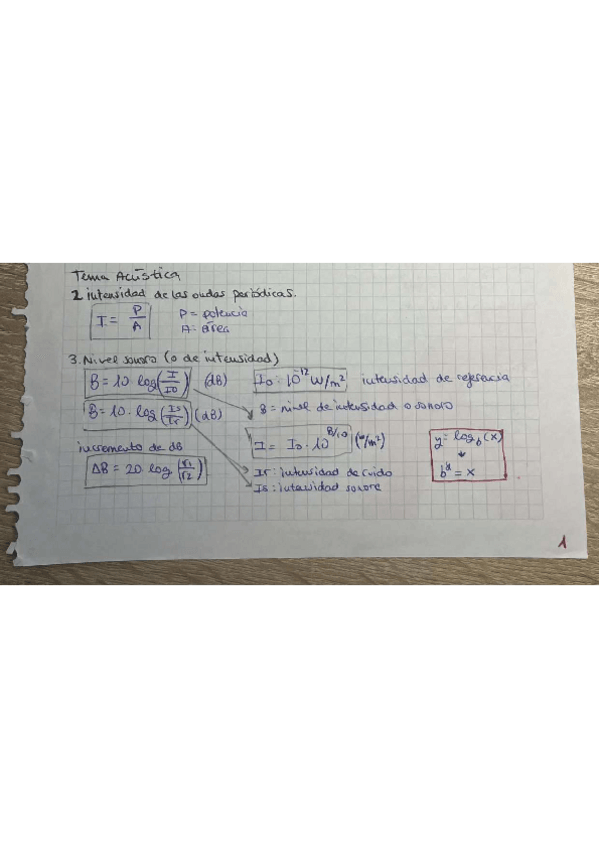 Tema Acústica
2 intensidad de las ondas periódicas.
I = P/A P = potencia
A: área
3. Nivel sonoro (o de intensidad)
B = 10 log(I/I0) (dB) I0: 10^-12 W/m² intensidad de referencia
B = 10 · log(Is/Ir) (dB) B = nivel de intensidad o sonoro
incremento de dB I = I0 · 10^B/10 (W/m²) y = log_b(x)
ΔB = 20 log (r1/r2) Ir: intensidad de ruido b^y = x
Is: intensidad sonora
1